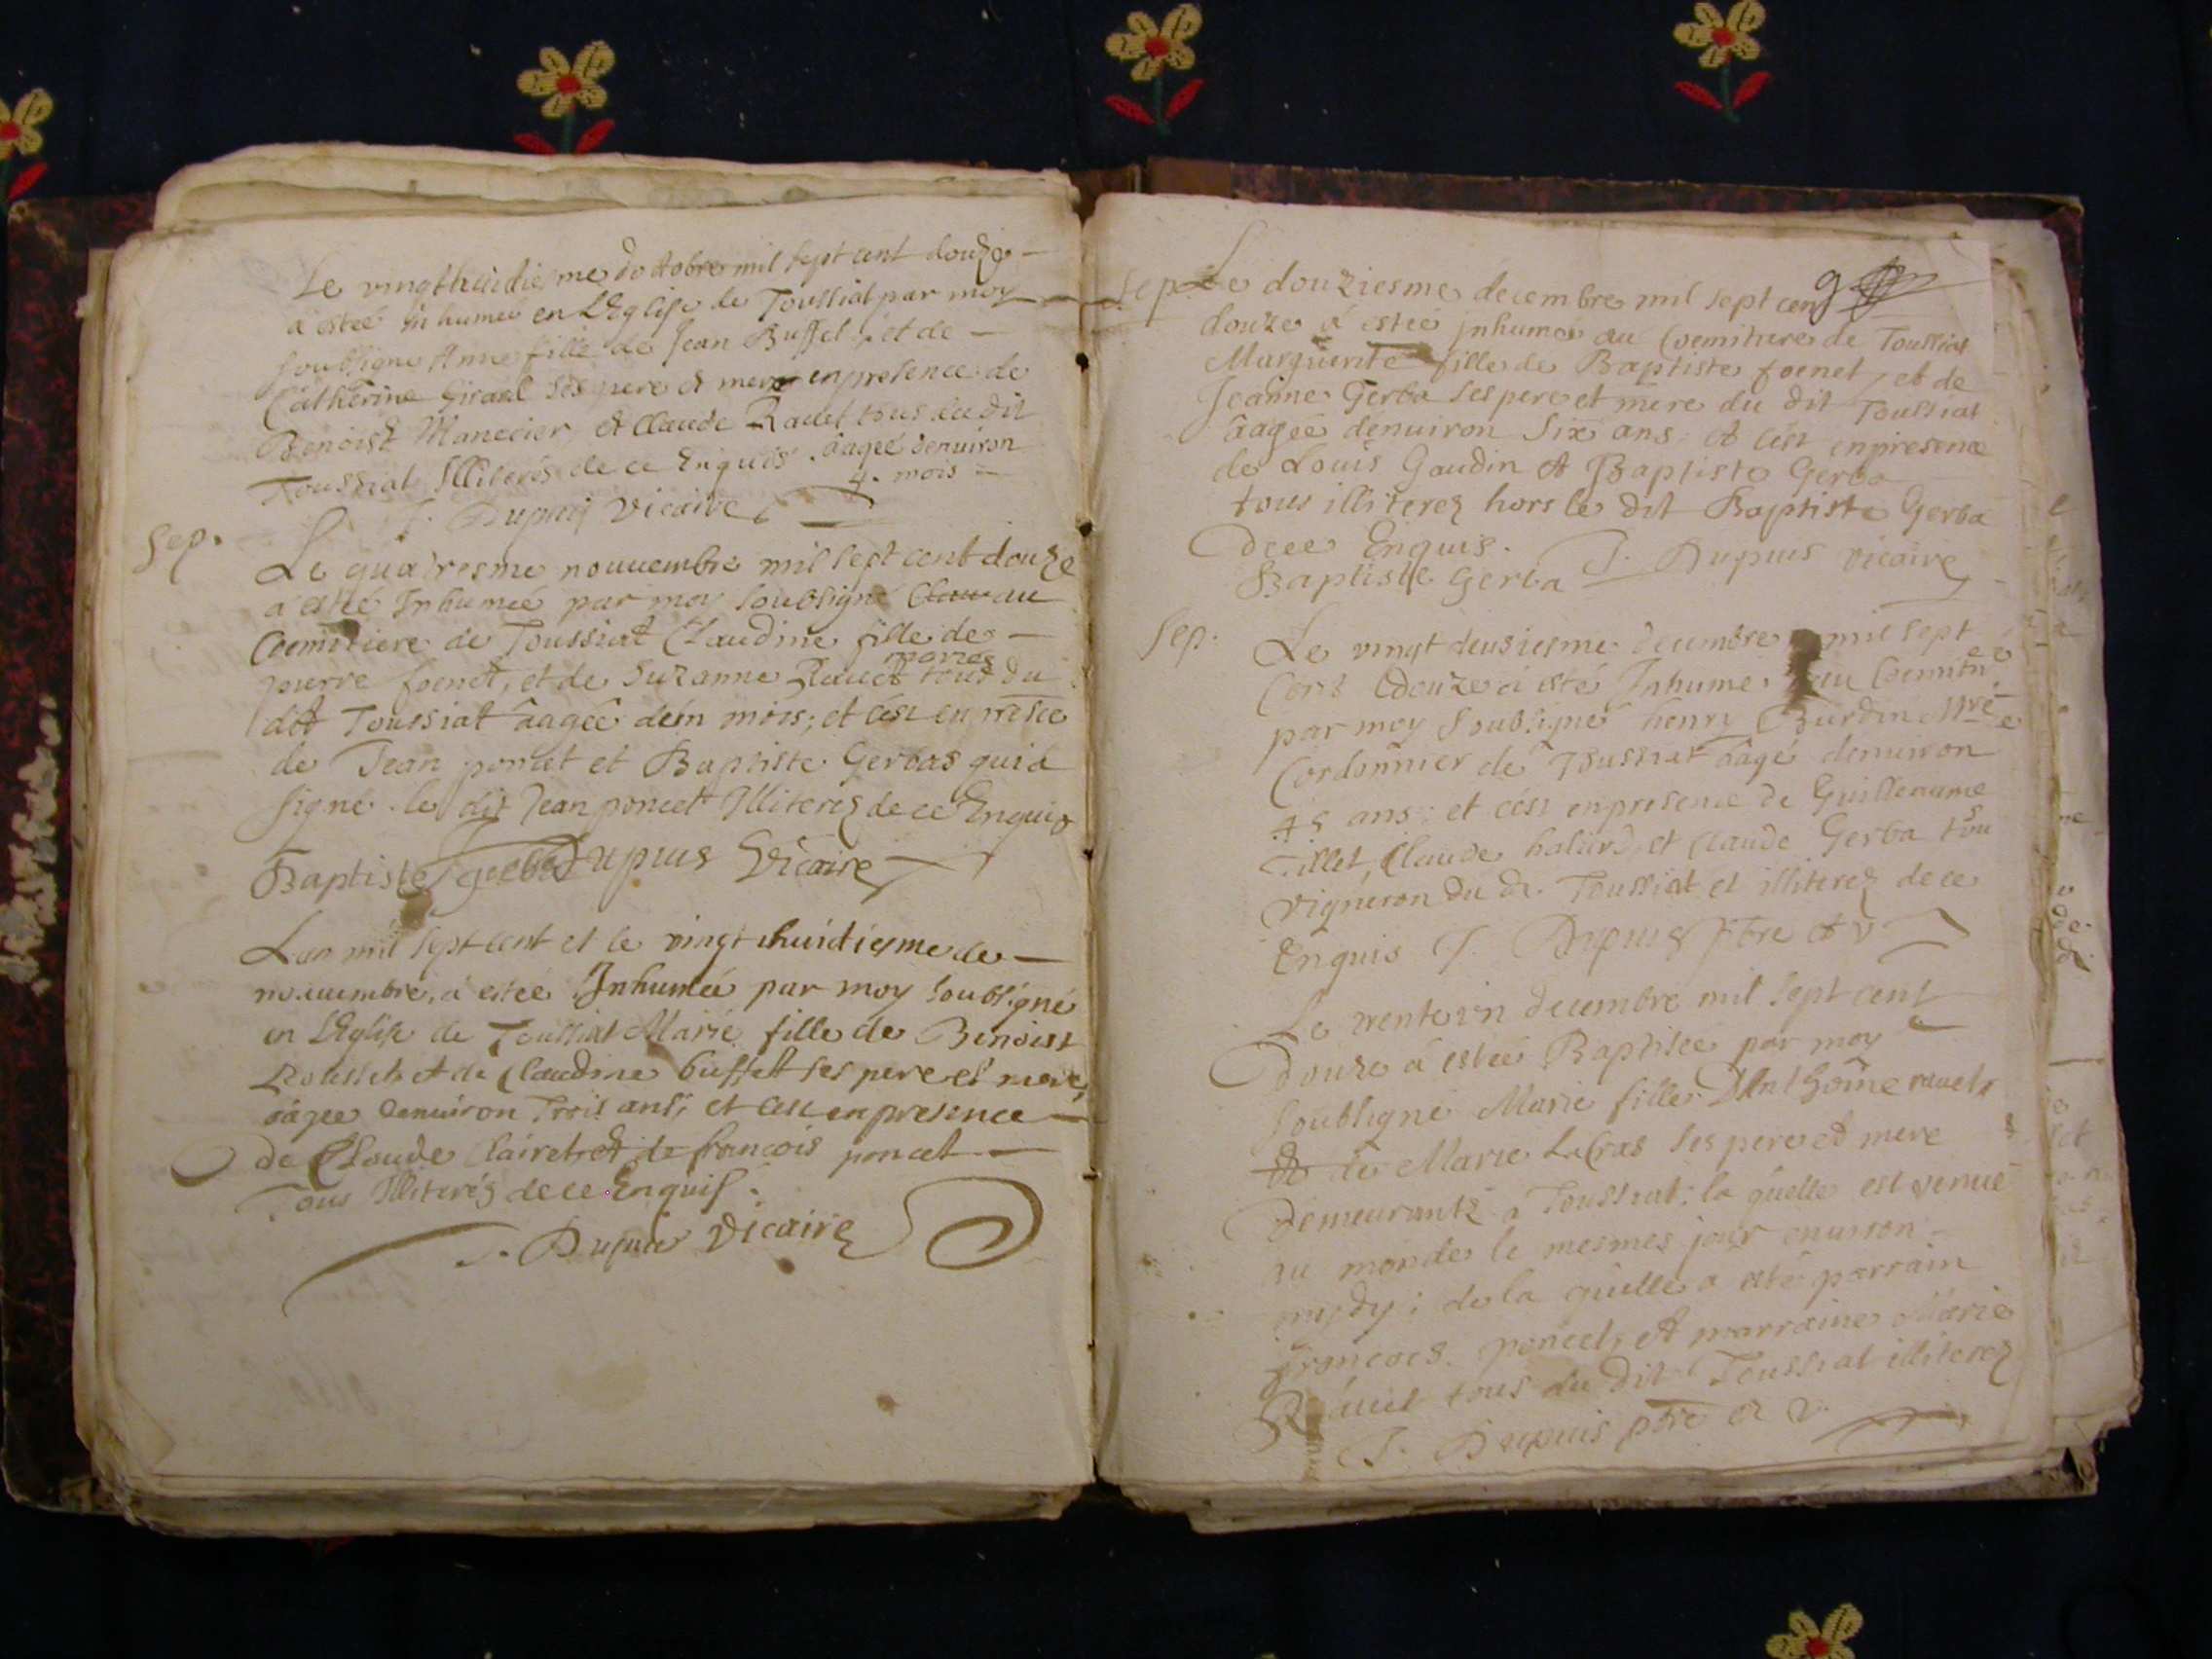 Le vingthuidiesme doctobre mil sept cent douze
a estée Inhumée en LEglise de Toussiat par moy
soubsigne Anne fille de Jean Buffet, et de
Catherine Girard ses pere et mere en presence de
Benoist Manecier et Claude Rauet tous du dit
Toussiat Illiterés de ce Enquis. âagée denuiron
4. mois
J. Dupuis Vicaire
Sep.
Le quatresme nouuembre mil sept cent douze
a estée Inhumée par moy soubsigné au
Coemitiere de Toussiat Claudine fille de
pierre foenet, et de Suzanne Rauet tous du
mariés
dit Toussiat âagée dein mois; et cest en presce
de Jean poncet et Baptiste Gerbas qui a
signé. le dit Jean poncet Illiterez de ce Enquis
Baptiste gerba Dupuis Vicaire
Lan mil sept cent et le vingt huidiesme de
nouuembre, a estée Inhumée par moy soubsigné
en LEglise de Toussiat Marie fille de Benoist
Rousset et de Claudine buffet ses pere et mere,
âagee denuiron Trois ans, et cest en presence
de Claude Clairet et de francois poncet
Tous Illiterés de ce Enquis.
J. Dupuis Vicaire
9
Sep. Le douziesme decembre mil sept cent
douze a estée jnhumée au Coemitiere de Toussiat
Marguerite fille de Baptiste foenet, et de
Jeanne Gerba ses pere et mere du dit Toussiat
âagée denuiron Six ans. et cest en presence
de Louis Gaudin et Baptiste Gerba
tous illiterez hors le dit Baptiste Gerba
de ce Enquis.
Baptiste Gerba J. Dupuis vicaire
Sep.
Le vingt deusiesme decembre mil sept
Cent douze a esté Inhumé au Coemitre
par moy soubsigné henry Burdin Mre
Cordonnier de Toussiat âagé denuiron
45 ans: et cest en presence de Guillaume
Tillet, Claude halard, et Claude Gerba tous
vigneron du d. Toussiat et illiterez de ce
Enquis J. Dupuis ptre et v
Le trente vn decembre mil sept cent
douze a estée Baptisée par moy
soubsigné Marie fille Danthoine rauet
et de Marie LaCras ses pere et mere
demeurantz a Toussiat: la quelle est venue
au monde le mesmes jour enuiron
mydy: de la quelle a esté parrain
francois poncet, et marraine Marie
Rauet tous du dit Toussiat illiterez
J. Dupuis ptre et v.